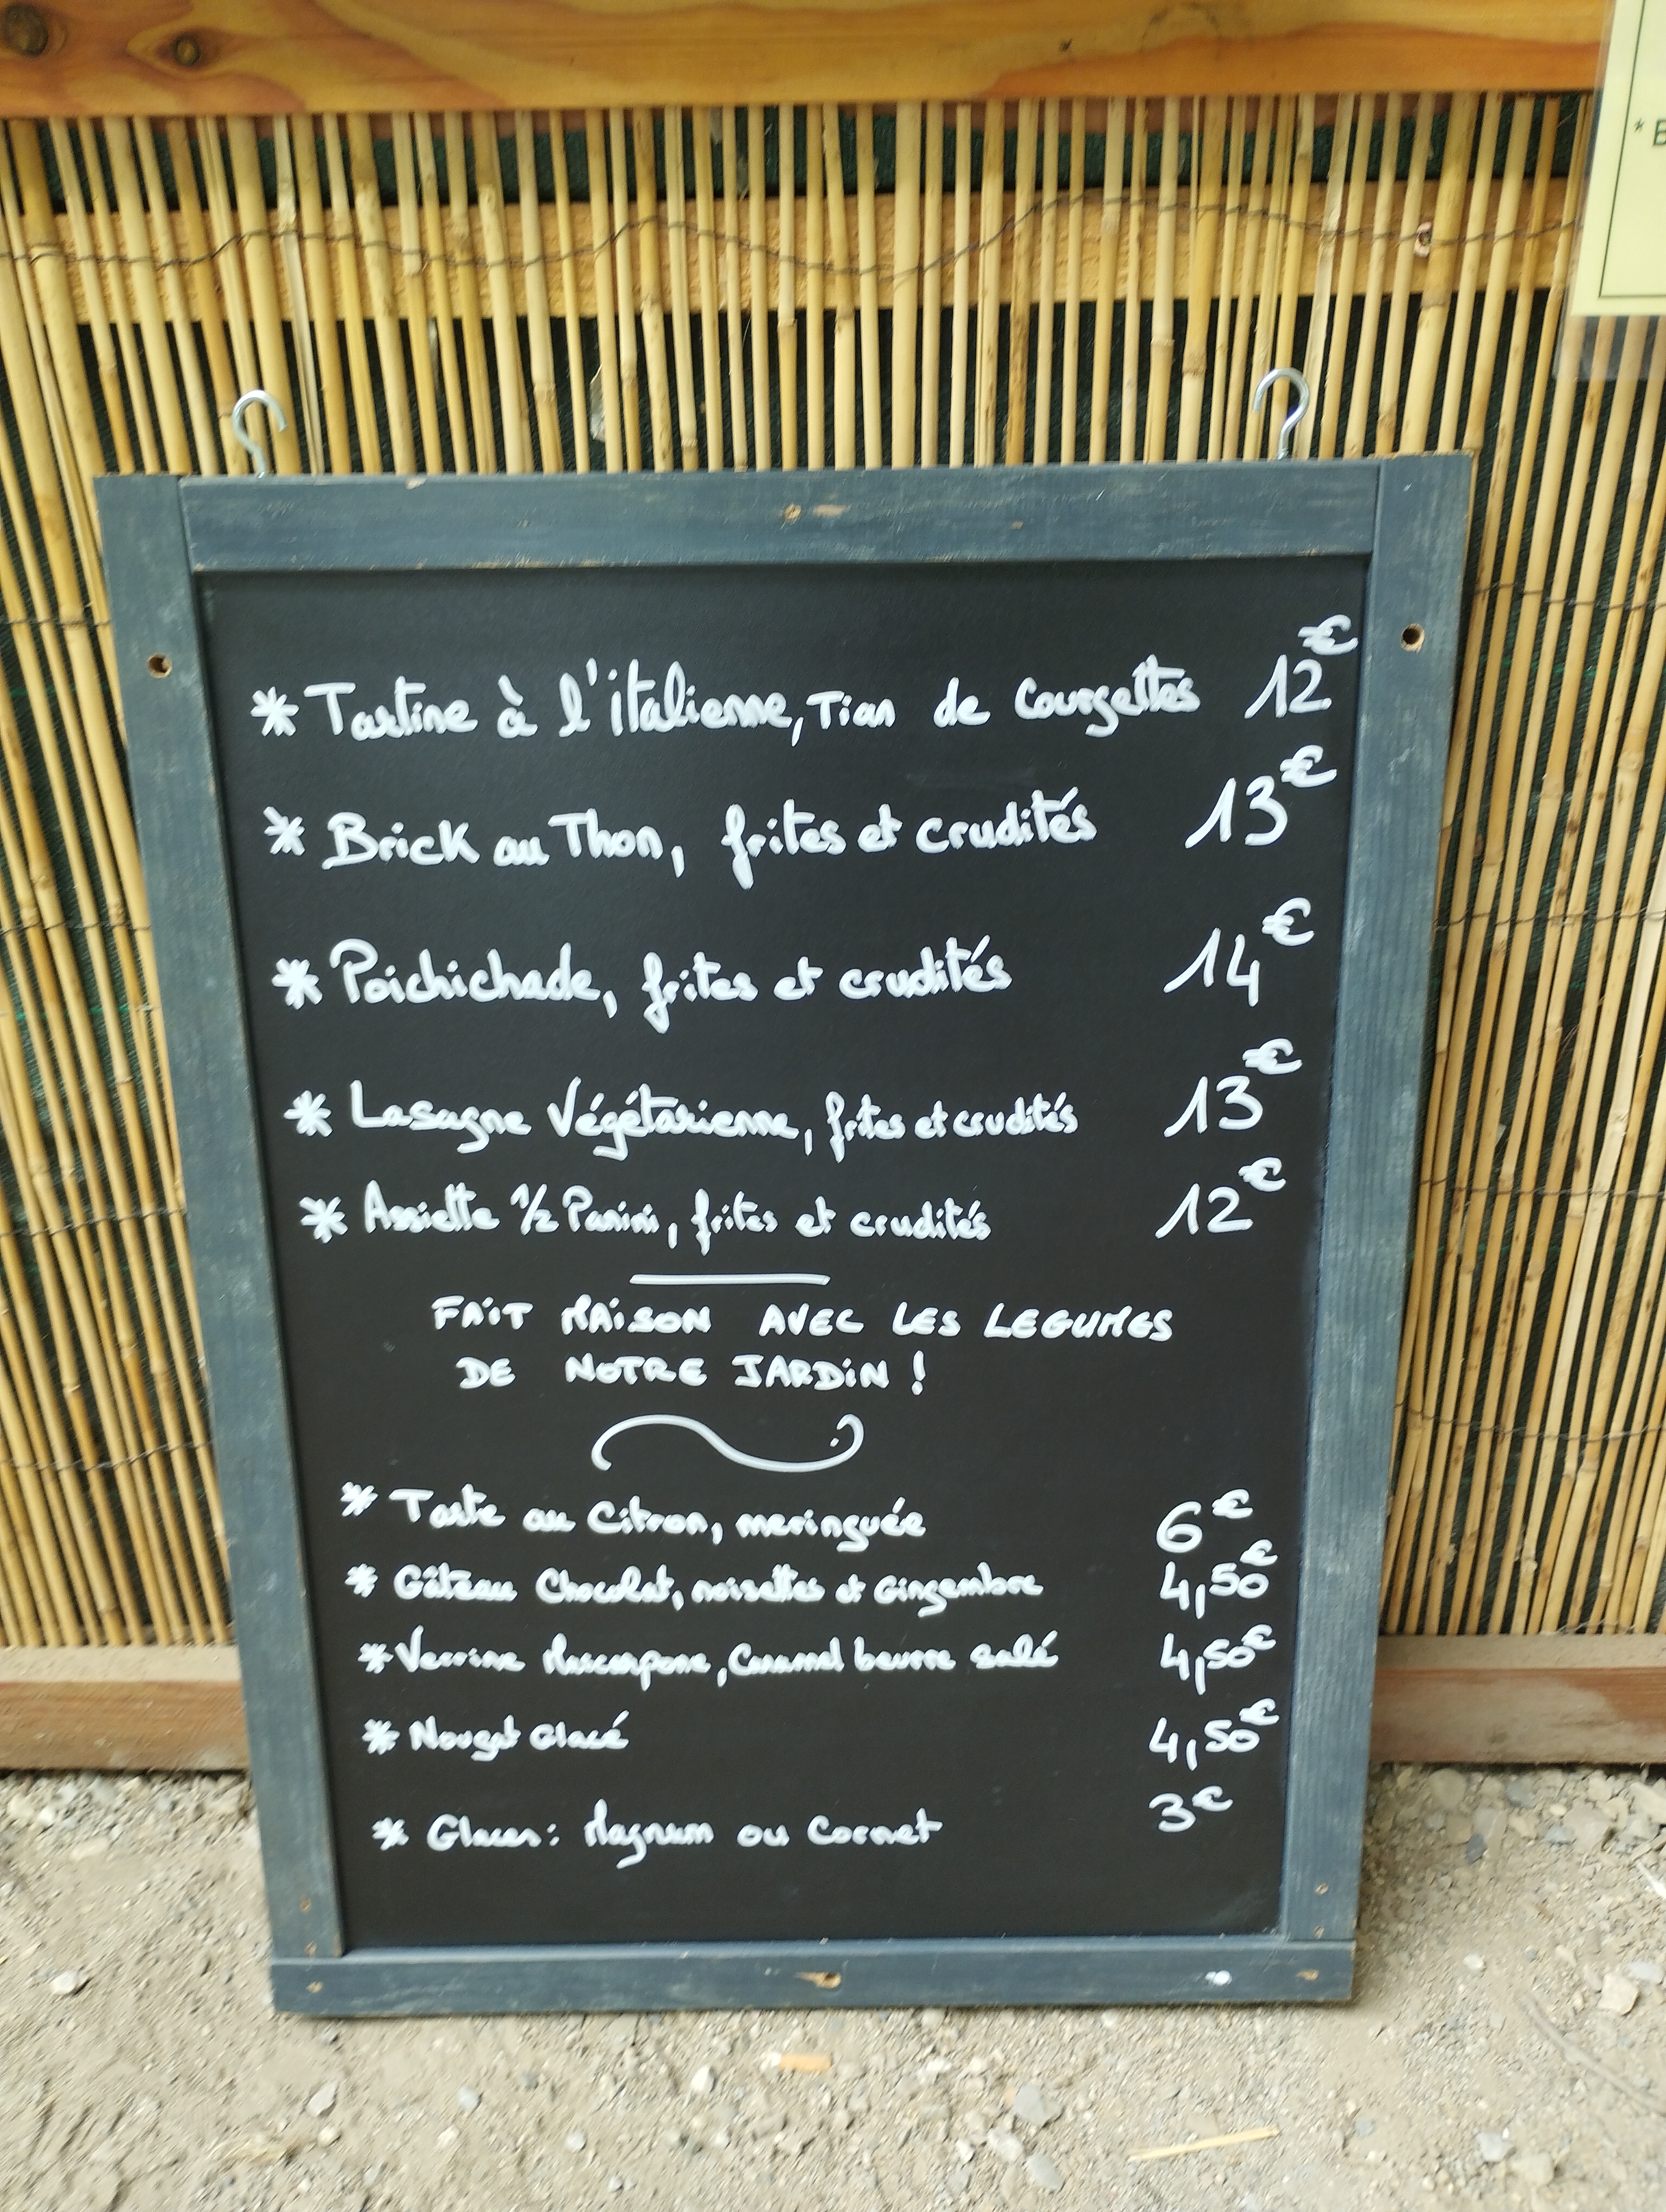 * Tartine à l'italienne, Tian de Courgettes 12€
* Brick au Thon, frites et crudités 13€
* Poichichade, frites et crudités 14€
* Lasagne Végétarienne, frites et crudités 13€
* Assiette 1/2 Panini, frites et crudités 12€
FAiT MAiSON AVEC LES LEGUMES
DE NOTRE JARDiN !
* Tarte au Citron, meringuée 6€
* Gâteau Chocolat, noisettes et Gingembre 4,50€
* Verrine Mascarpone, Caramel beurre salé 4,50€
* Nougat Glacé 4,50€
* Glaces : Magnum ou Cornet 3€